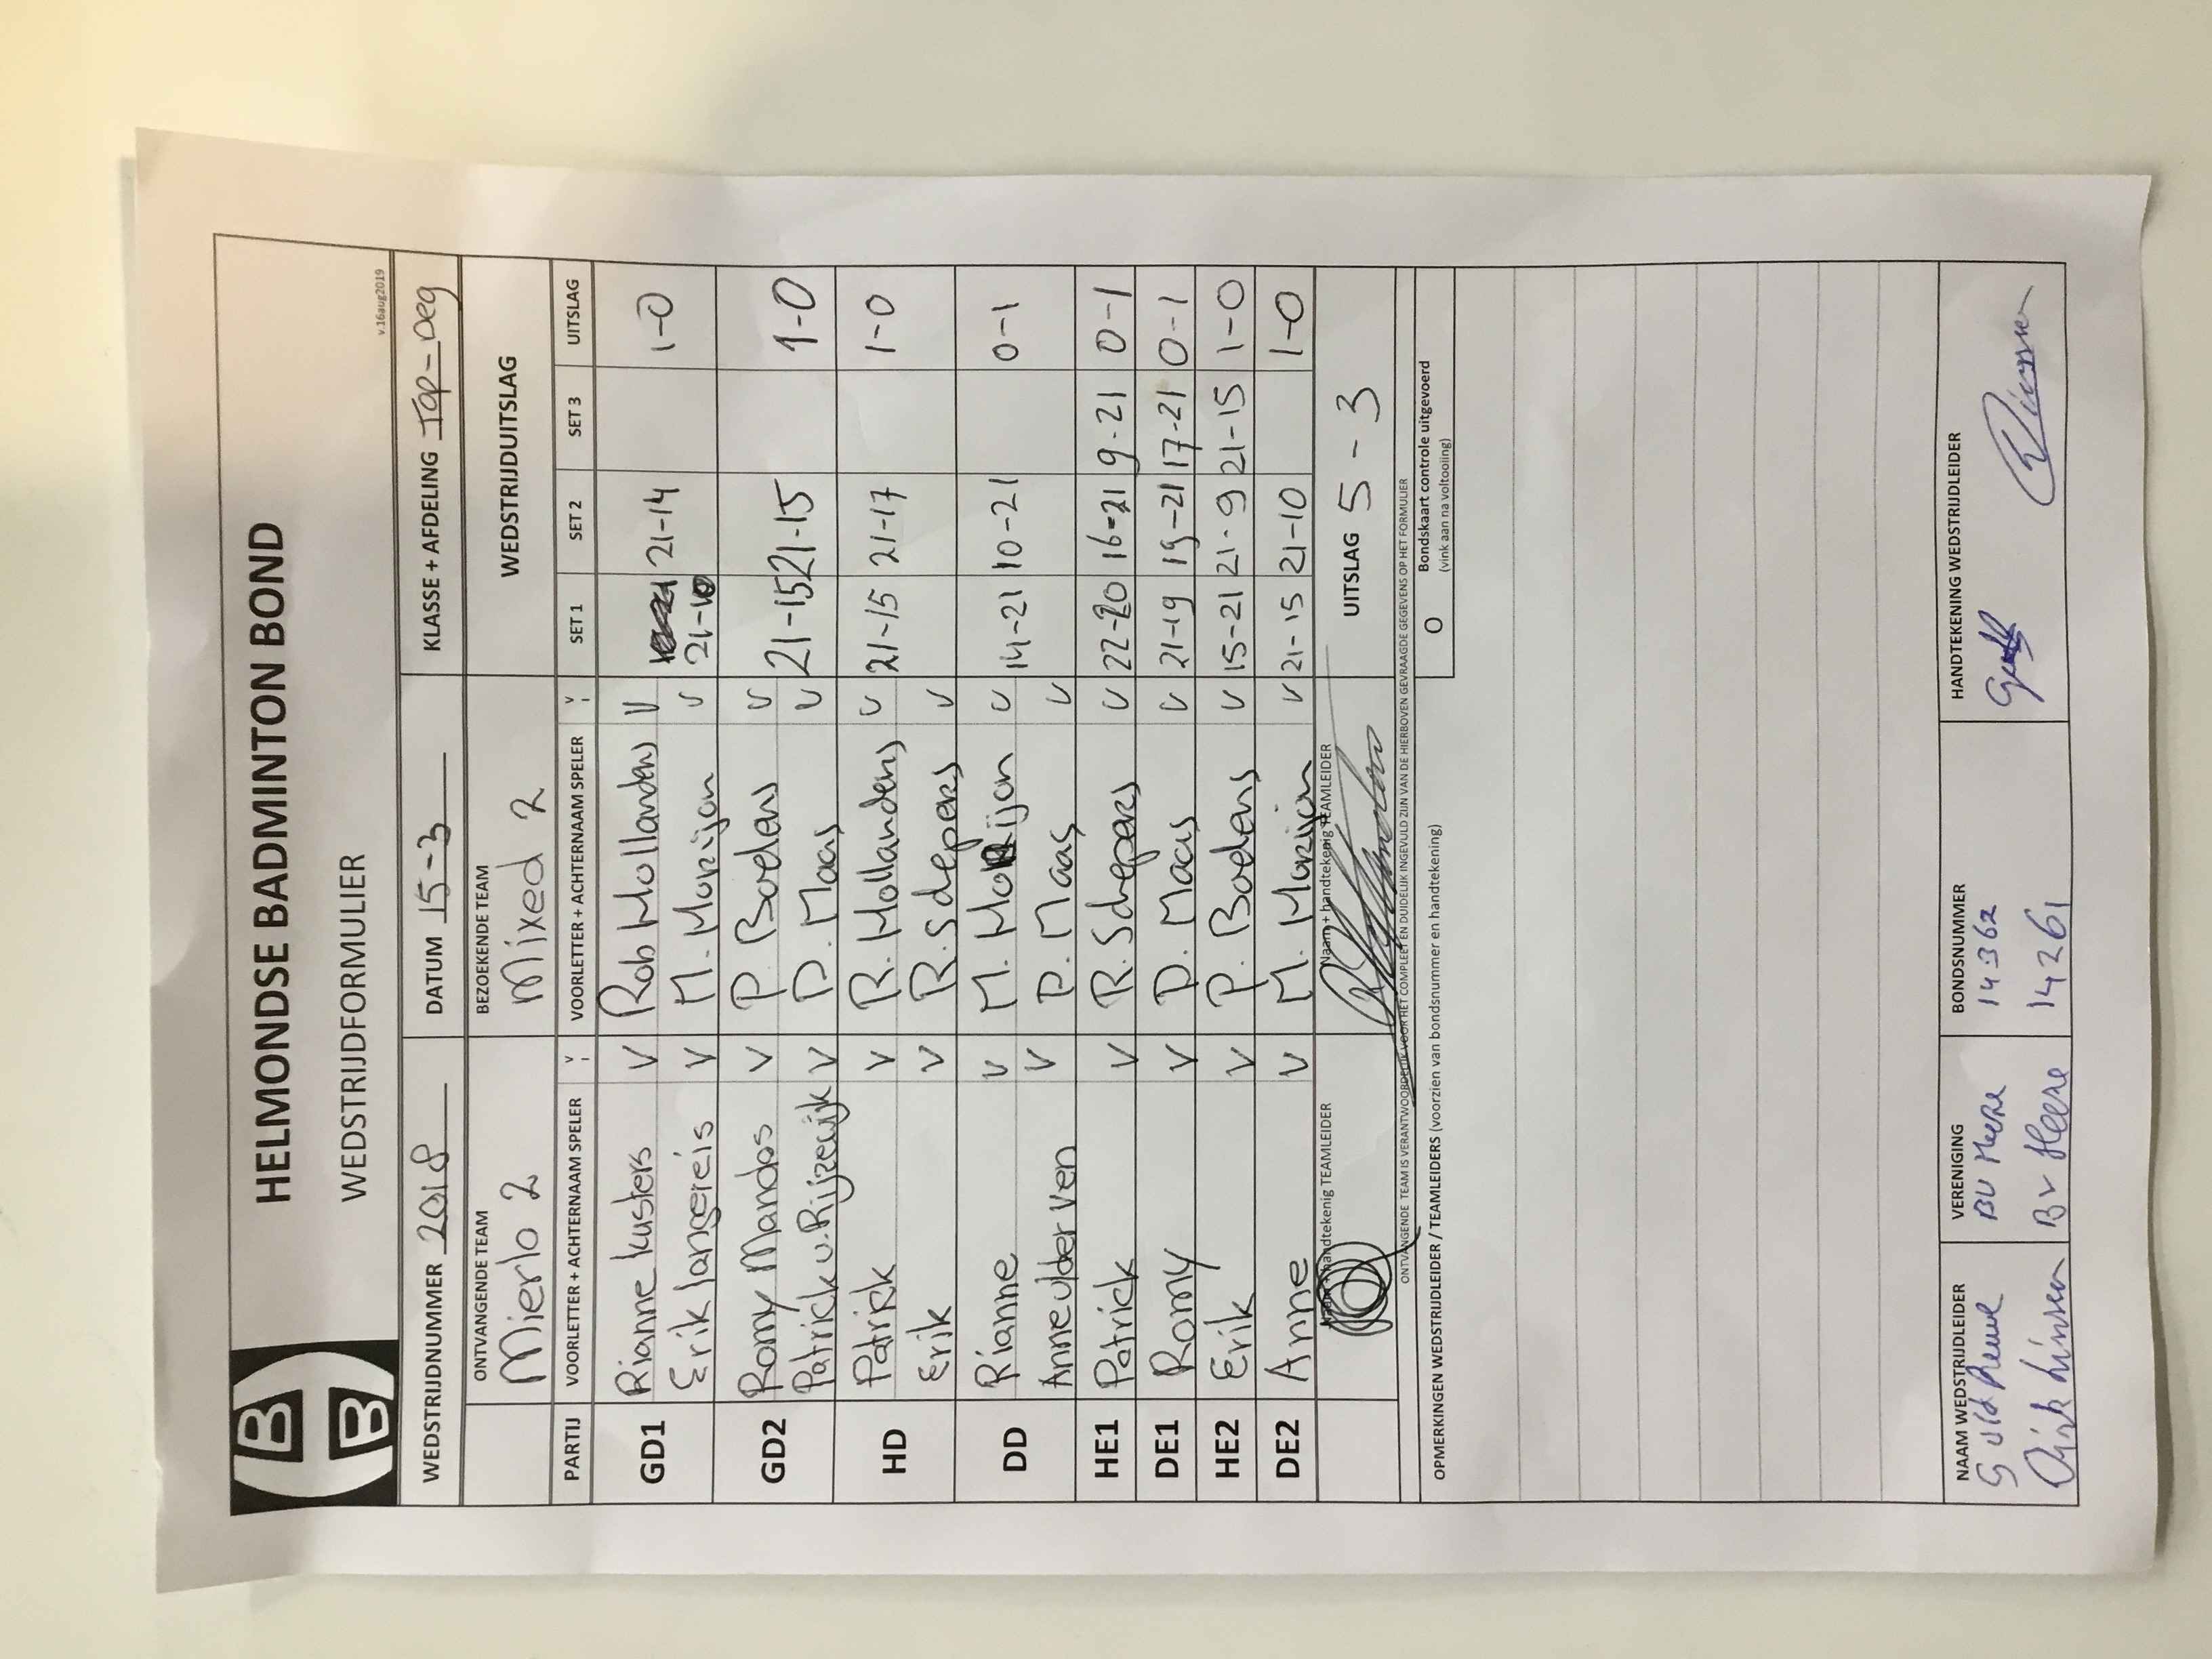 HELMONDSE BADMINTON BOND
WEDSTRIJDFORMULIER
v.16aug2019
WEDSTRIJDNUMMER 2018 DATUM 15-3 KLASSE + AFDELING Top-Deg
ONTVANGENDE TEAM BEZOEKENDE TEAM WEDSTRIJDUITSLAG
Mierlo 2 Mixed 2
PARTIJ VOORLETTER + ACHTERNAAM SPELER V VOORLETTER + ACHTERNAAM SPELER V SET 1 SET 2 SET 3 UITSLAG
GD1 Rianne Kusters V Rob Hollanders V 21-14 1-0
Erik Langereis V M. Morijon V 21-10
GD2 Romy Mandos V P. Boelens V
Patrick v. Rijzewijk V D. Maas V 21-15 21-15 1-0
HD Patrick V R. Hollanders V 21-15 21-17 1-0
Erik V R. Schepers V
DD Rianne V M. Morijon V 14-21 10-21 0-1
Anne vlder Ven V D. Maas V
HE1 Patrick V R. Schepers V 22-20 16-21 9-21 0-1
DE1 Romy V D. Maas V 21-19 19-21 17-21 0-1
HE2 Erik V P. Boelens V 15-21 21-9 21-15 1-0
DE2 Anne V M. Morijon V 21-15 21-10 1-0
Naam + handtekenig TEAMLEIDER Naam + handtekenig TEAMLEIDER UITSLAG 5-3
ONTVANGENDE TEAM IS VERANTWOORDELIJK VOOR HET COMPLEET EN DUIDELIJK INGEVULD ZIJN VAN DE HIERBOVEN GEVRAAGDE GEGEVENS OP HET FORMULIER
OPMERKINGEN WEDSTRIJDLEIDER / TEAMLEIDERS (voorzien van bondsnummer en handtekening) O Bondskaart controle uitgevoerd
(vink aan na voltooling)
NAAM WEDSTRIJDLEIDER VERENIGING BONDSNUMMER HANDTEKENING WEDSTRIJDLEIDER
BV Meere 14362
Dirk Linssen BV Heere 14261